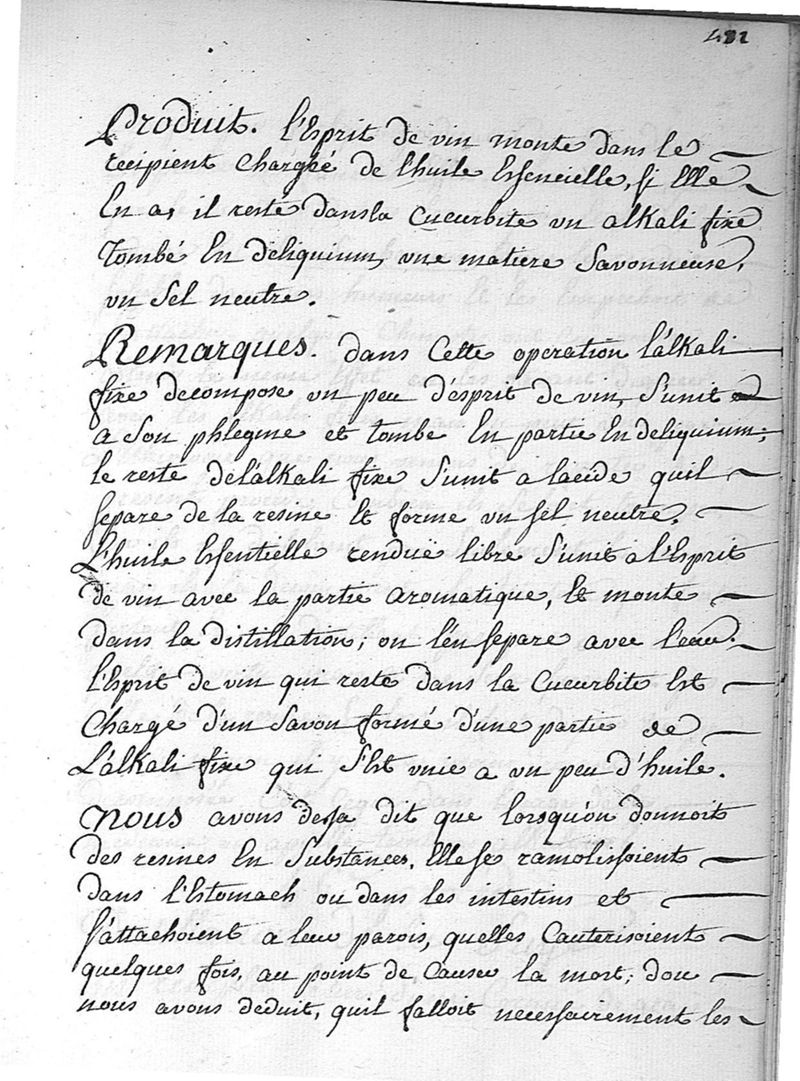 Produit. l'Esprit de vin monte dans le
recipient chargée de l'huile Essencielle, si Elle
En a, il reste dans la Cucurbite un alkali fixe
tombé En deliquium, une matiere Savonneuse,
un Sel neutre.
Remarques. dans Cette operation l'alkali
fixe decompose un peu d'esprit de vin, S'unit
a Son phlegme et tombe En partie En deliquium;
le reste de l'alkali fixe S'unit a lacide quil
separe de la resine Et forme un sel neutre.
L'huile Essentielle renduë libre S'unit a l'Esprit
de vin avec la partie aromatique, Et monte
dans la distillation; on l'en separe avec l'eau.
l'Esprit de vin qui reste dans la Cucurbite Est
Chargé d'un Savon formé d'une partie de
L'alkali fixe qui S'Est unie a un peu d'huile.
nous avons deja dit que lorsqu'on donnoit
des resines En Substances, Elle se ramolissoient
dans l'Estomach ou dans les intestins et
s'attachoient a leur parois, quelles Cauterisoient
quelques fois, au point de Causer la mort; dou
nous avons deduit, quil falloit necessairement les